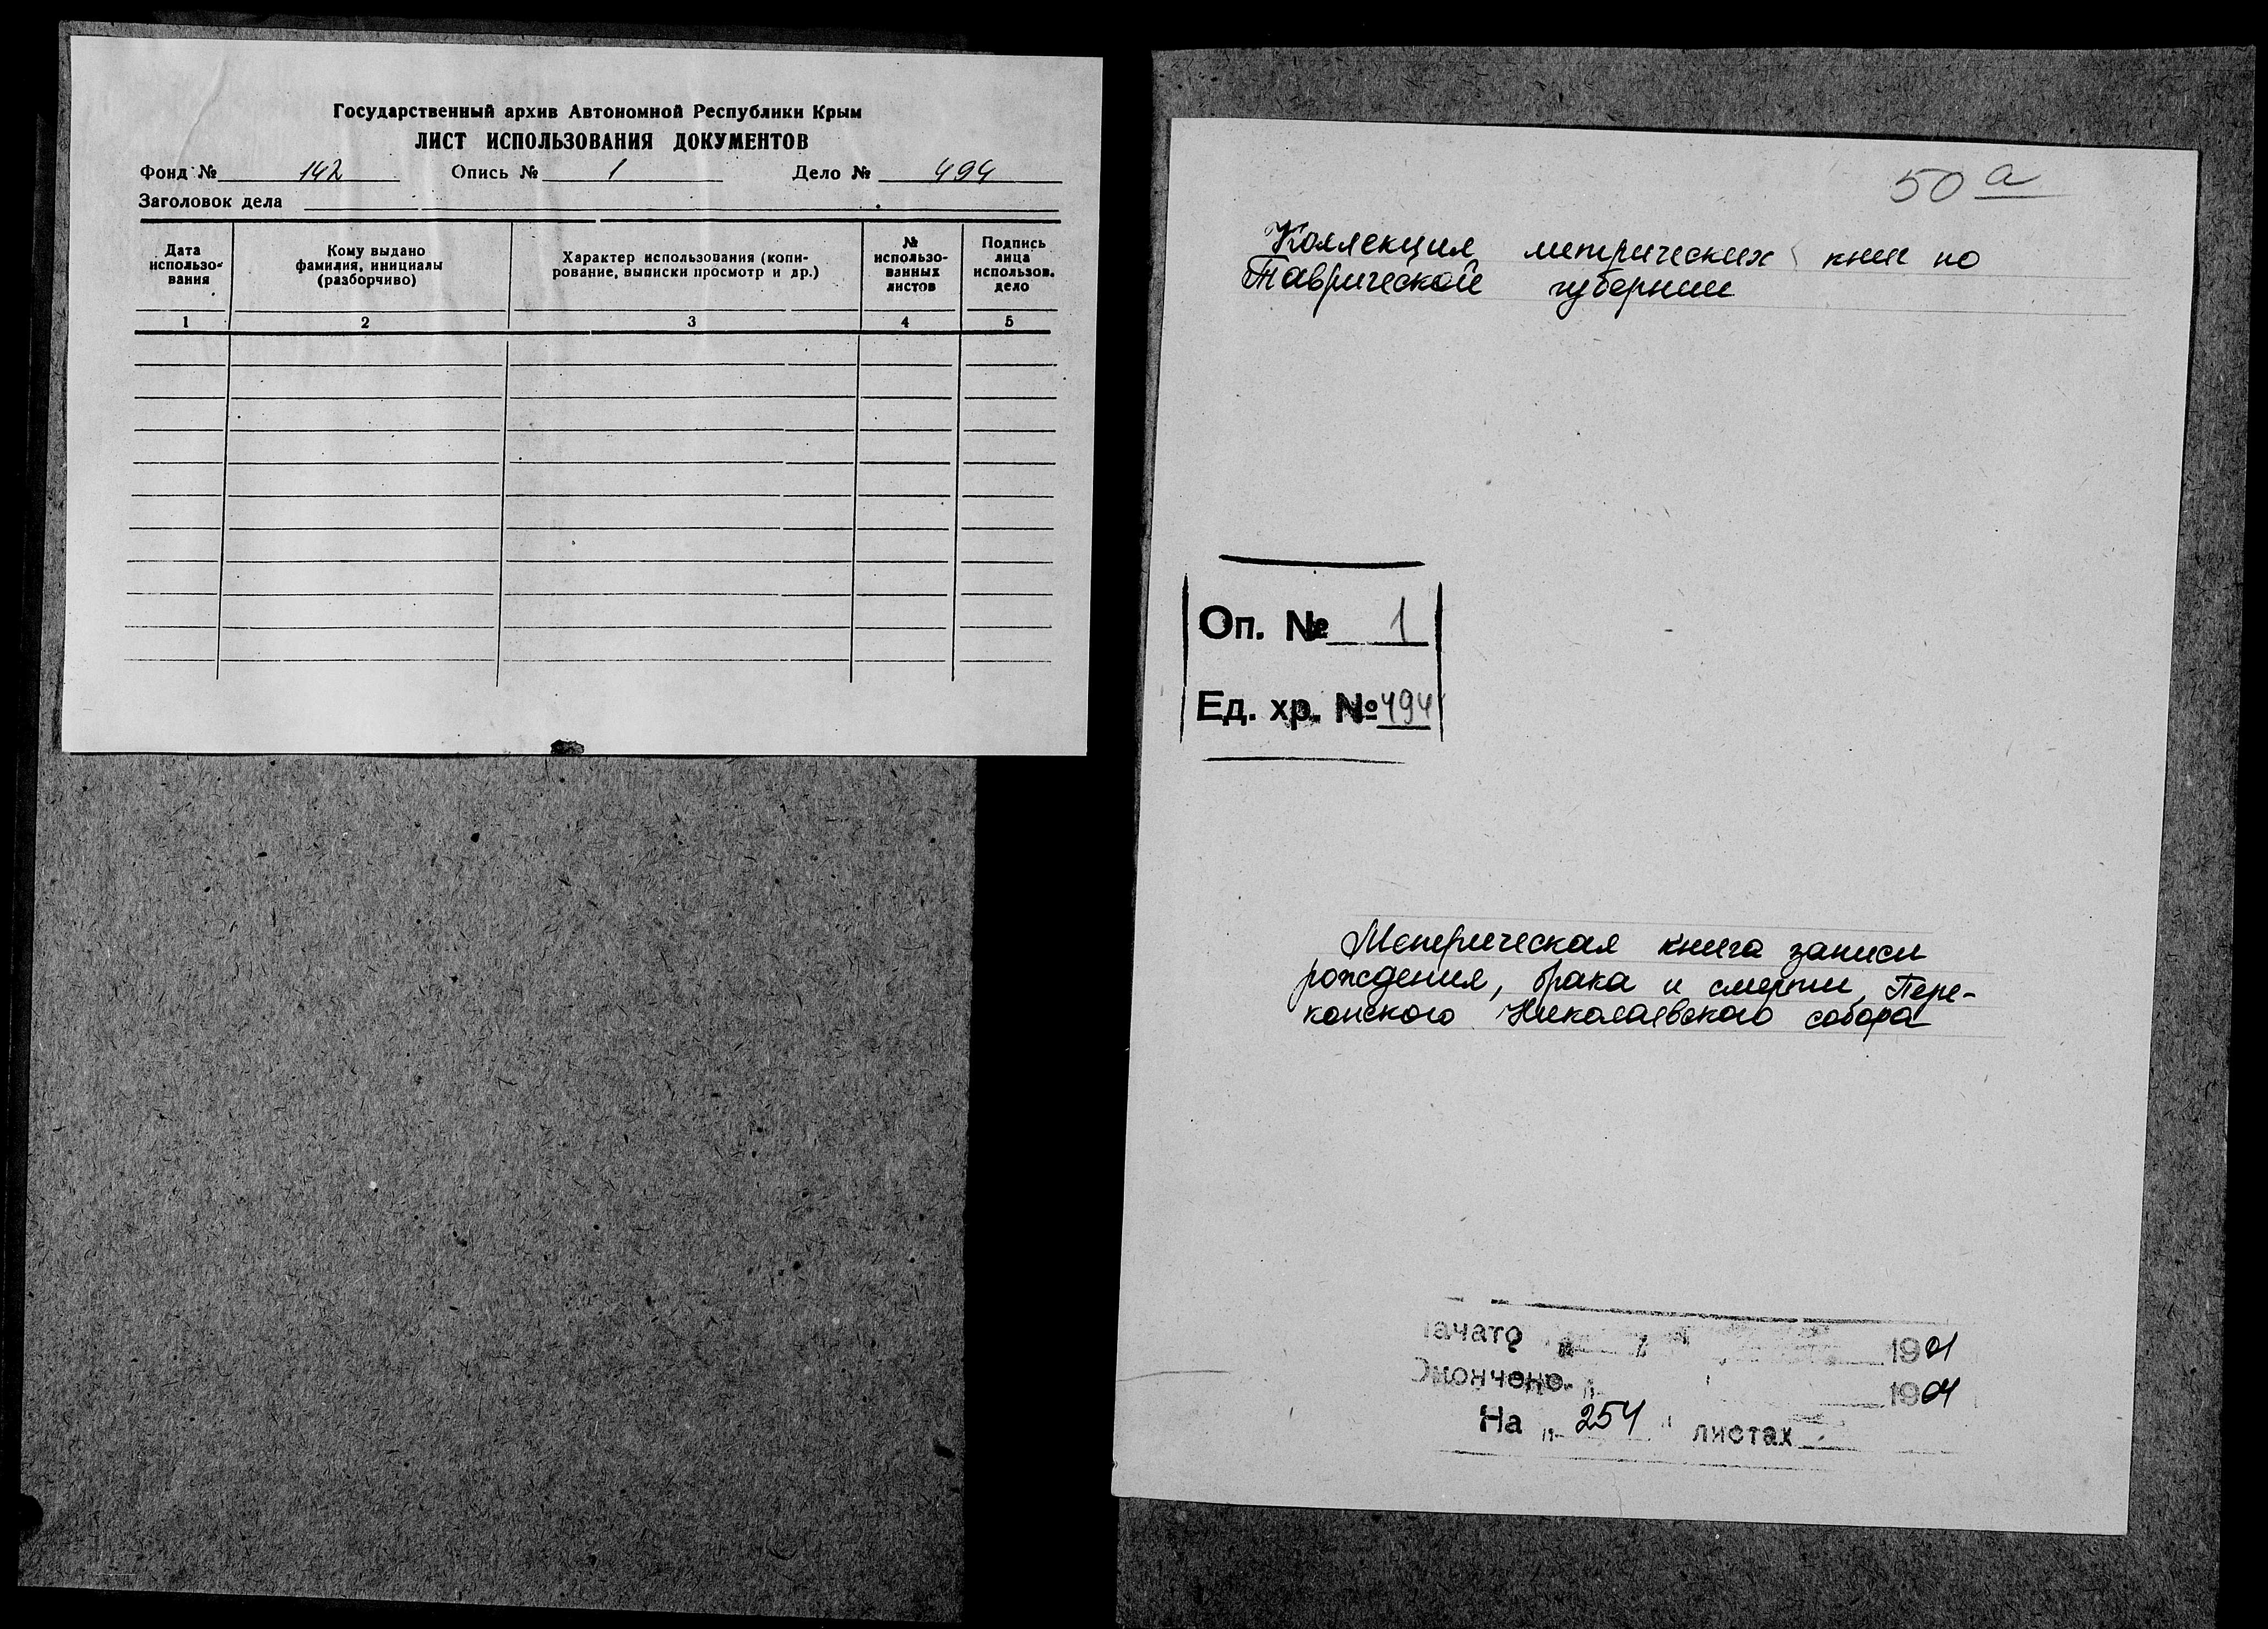 Государственный архив Автономной Республики Крым
ЛИСТ ИСПОЛЬЗОВАНИЯ ДОКУМЕНТОВ
Фонд № 142 Опись № 1 Дело № 494
Заголовок дела
Дата
использо-
вания
Кому выдано
фамилия, инициалы
(разборчиво)
Характер использования (копи-
рование, выписки просмотр и др.)
№
использо-
ванных
листов
Подпись
лица
использов.
дело
1 2 3 4 5
50 а
Коллекция метрических книг по
Таврической губернии
Оп. № 1
Ед. хр. № 494
Метрическая книга записи
рождения, брака и смерти Пере-
копского Николаевского собора
Начато 1901
Окончено 1904
На „254" листах